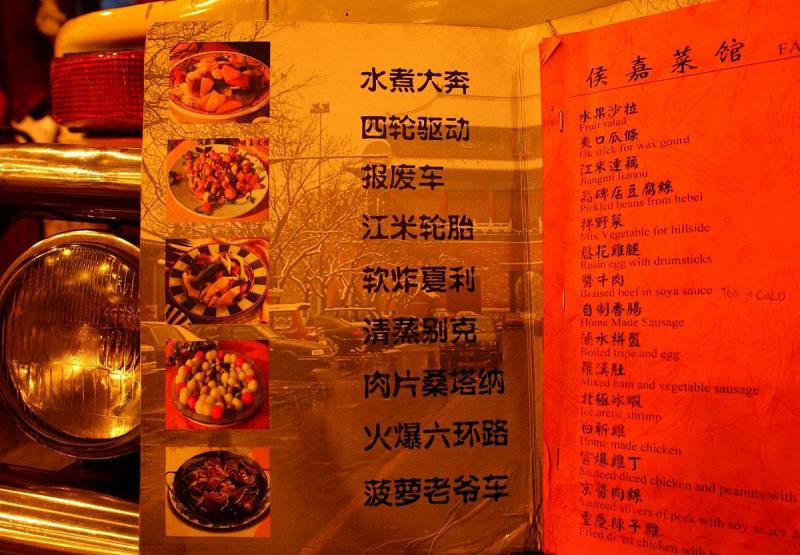 水煮大奔
四轮驱动
报废车
江米轮胎
软炸夏利
清蒸别克
肉片桑塔纳
火爆六环路
菠萝老爷车
侯嘉菜馆 FA
水果沙拉
Fruit salad
爽口瓜條
Ok stick for wax gourd
江米連藕
Jiangmi lianou
高碑店豆腐絲
Pickled beans from hebei
拌野菜
Mix Vegetable for hillside
鬆花雞腿
Resin egg with drumsticks
醬牛肉
Braised beef in soya sauce
自制香腸
Home Made Sausage
滷水拼盤
Boiled tripe and egg
羅漢肚
Mixed ham and vegetable sausage
北極冰蝦
Ice arctic shrimp
白斬雞
Home made chicken
宮爆雞丁
Sauteed diced chicken and peanuts with
京醬肉絲
Sauteed slivers of pork with soy sauce &
重慶辣子雞
Fried diced chicken with